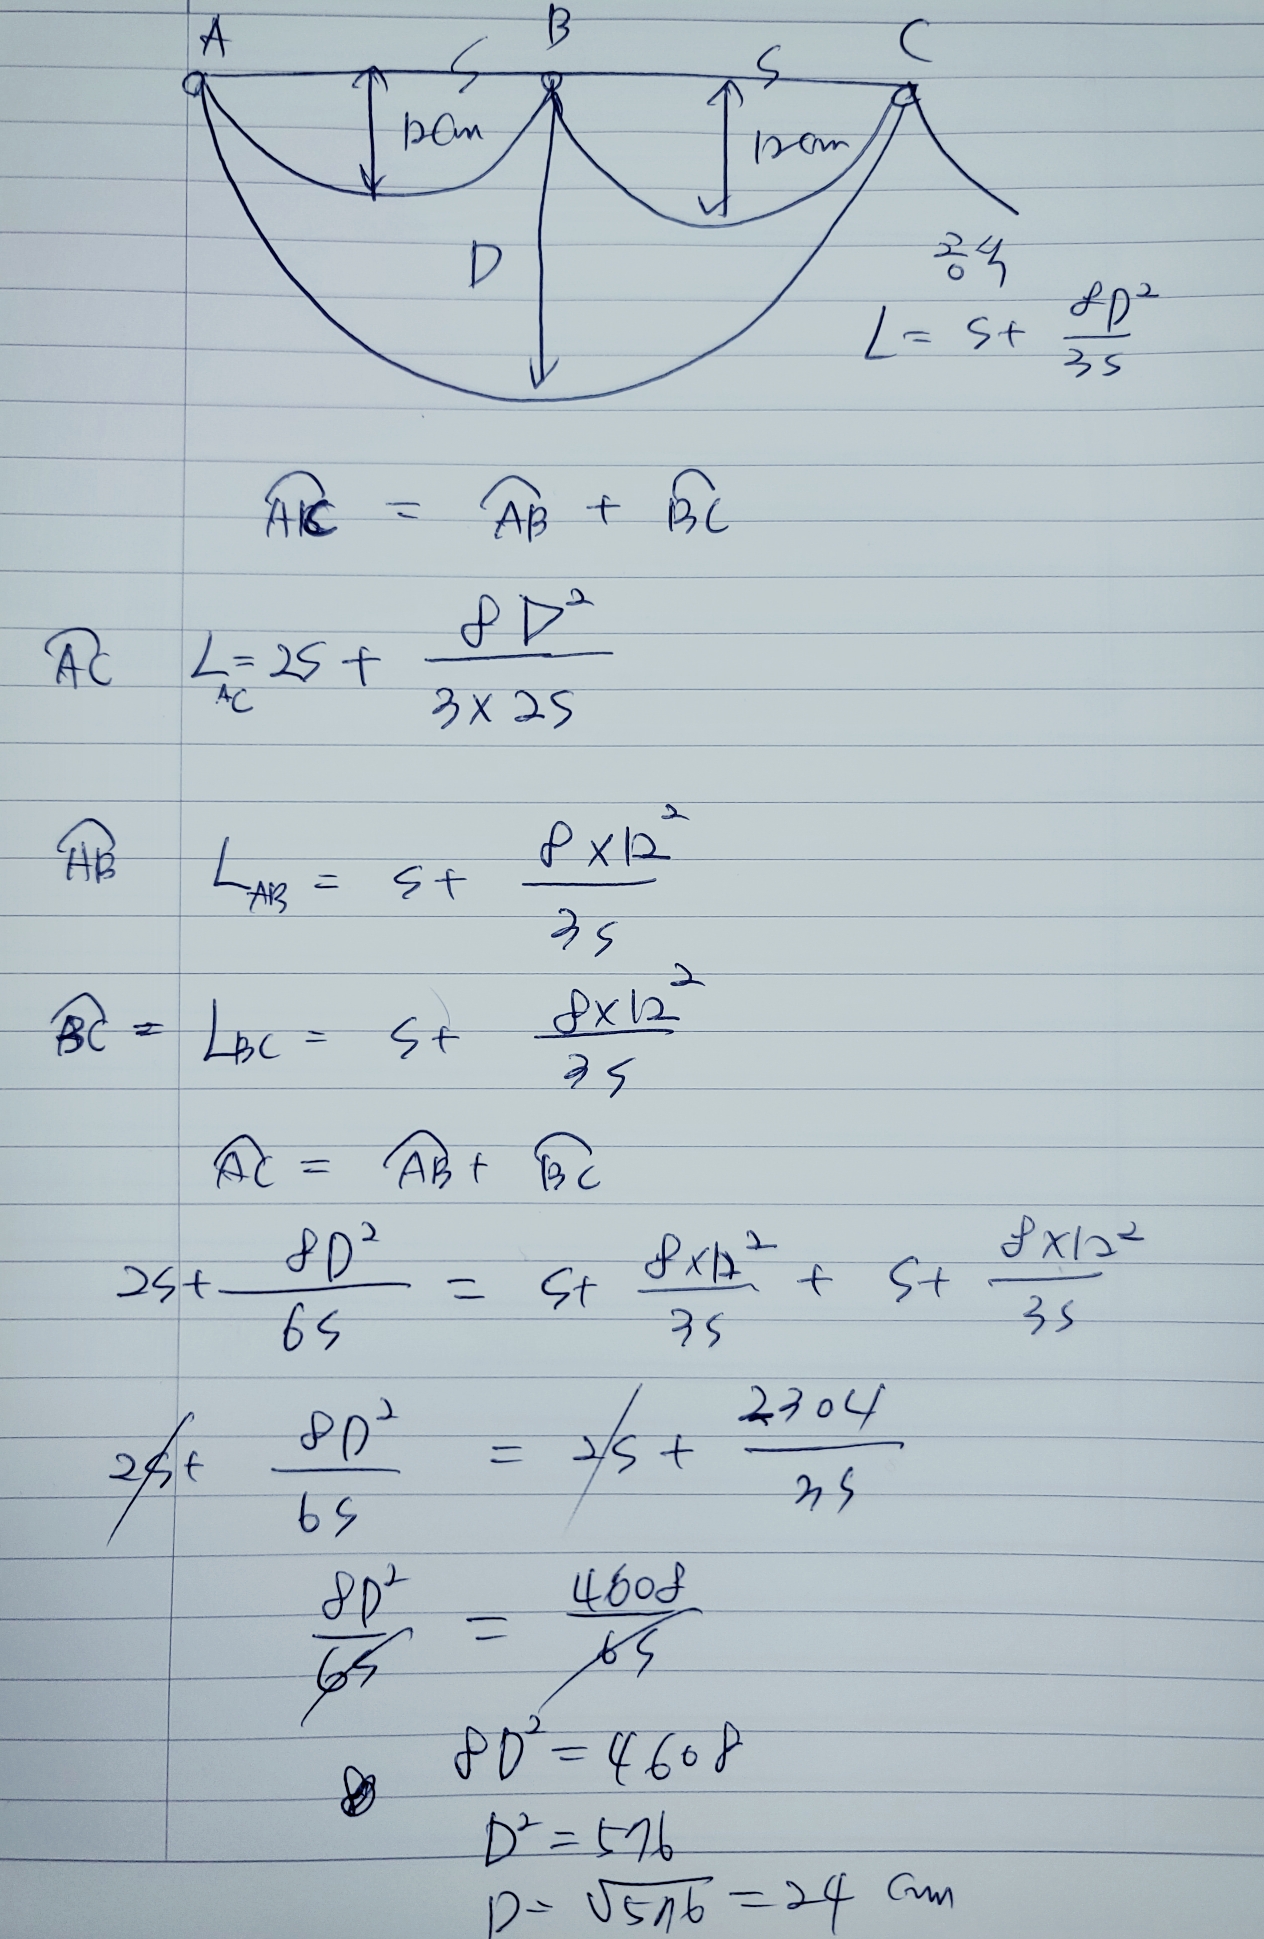 A B C
S S
12cm 12cm
D
공식
L = S + 8D²/3S
AC = AB + BC
AC L_AC = 2S + 8D²/3×2S
AB L_AB = S + 8×12²/3S
BC = L_BC = S + 8×12²/3S
AC = AB + BC
2S + 8D²/6S = S + 8×12²/3S + S + 8×12²/3S
2S + 8D²/6S = 2S + 2304/3S
8D²/6S = 4608/6S
8D² = 4608
D² = 576
D = √576 = 24 cm